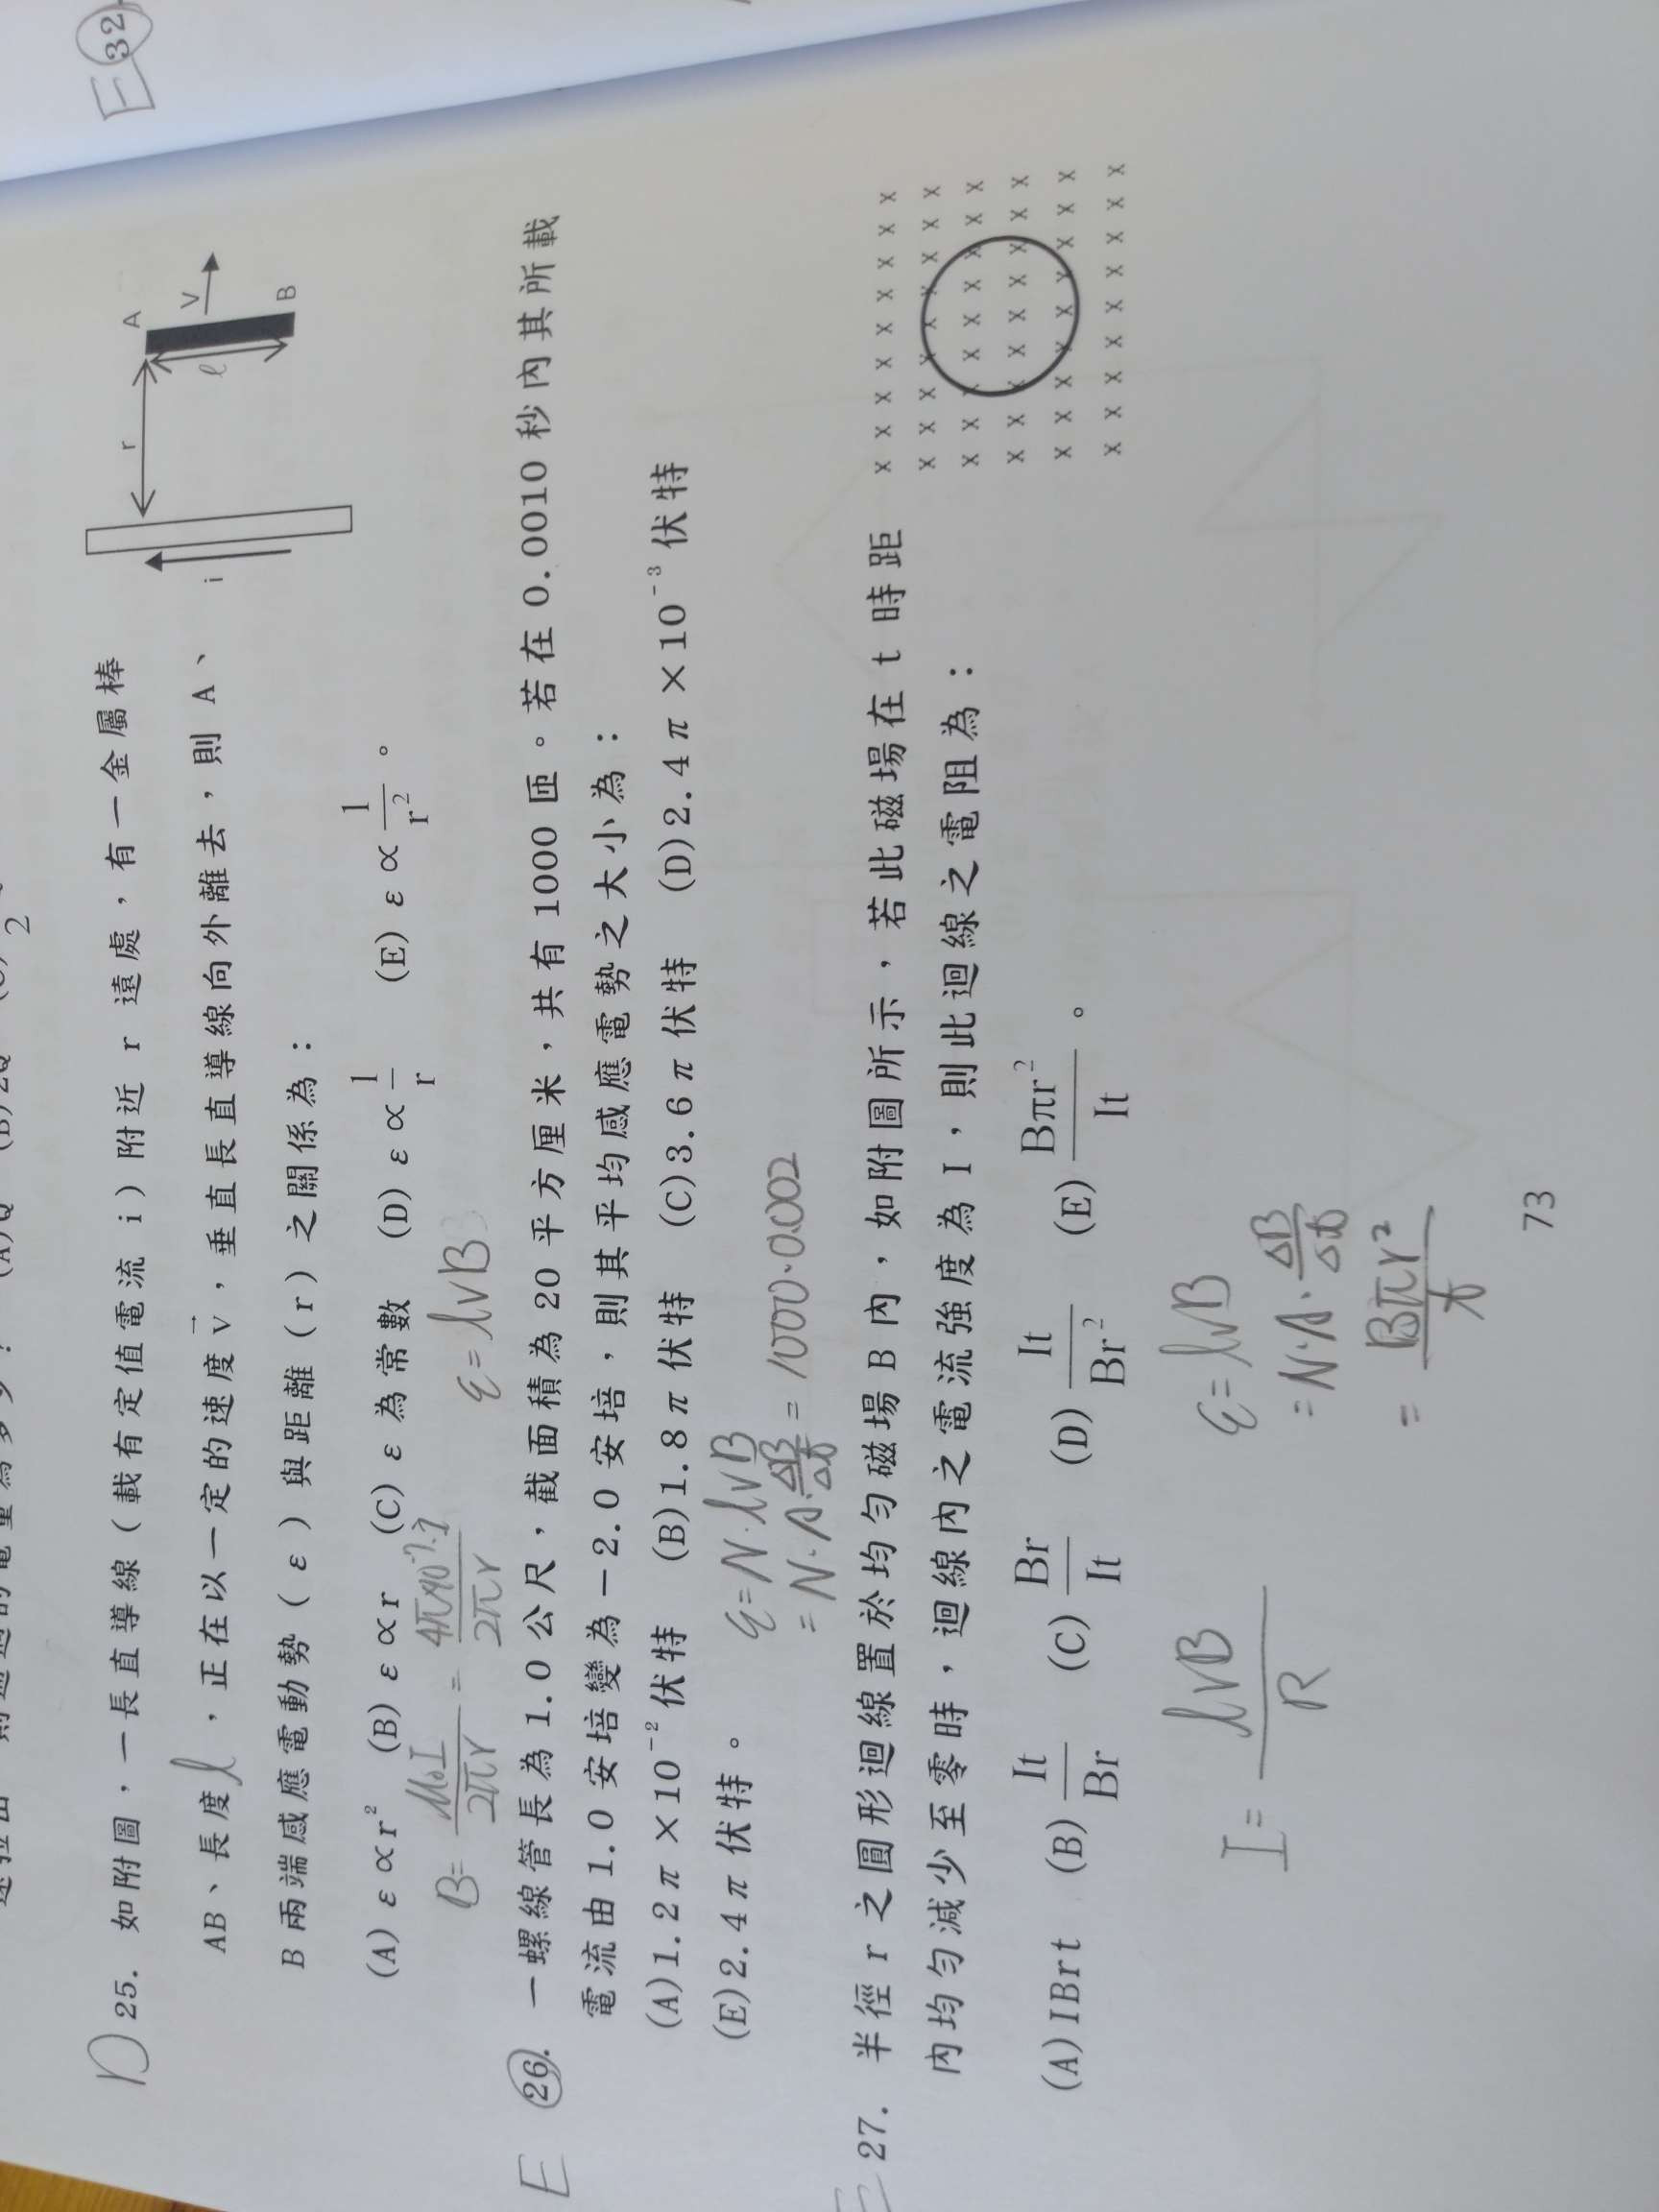 D 25. 如附圖，一長直導線（載有定值電流 i）附近 r 遠處，有一金屬棒
AB、長度ℓ，正在以一定的速度v⃗，垂直長直導線向外離去，則 A、
B 兩端感應電動勢（ε）與距離（r）之關係為：
(A) ε ∝ r² (B) ε ∝ r (C) ε 為常數 (D) ε ∝ 1/r (E) ε ∝ 1/r²。
r
A
V
ℓ
B
i
B = μ₀I/2πr = 4π×10⁻⁷·I/2πr
ε = ℓvB
E 26. 一螺線管長為 1.0 公尺，截面積為 20 平方厘米，共有 1000 匝。若在 0.0010 秒內其所載
電流由 1.0 安培變為－2.0 安培，則其平均感應電勢之大小為：
(A)1.2π×10⁻²伏特 (B)1.8π伏特 (C)3.6π伏特 (D)2.4π×10⁻³伏特
(E)2.4π伏特。
ε = N·ℓvB
= N·A·ΔB/Δt = 1000·0.002
E 27. 半徑 r 之圓形迴線置於均勻磁場 B 內，如附圖所示，若此磁場在 t 時距
內均勻減少至零時，迴線內之電流強度為 I，則此迴線之電阻為：
(A)IBrt (B) It/Br (C) Br/It (D) It/Br² (E) Bπr²/It。
x x x x x x x x
x x x x x x x x
x x x x x x x x
x x x x x x x x
x x x x x x x x
x x x x x x x x
I = ℓvB/R
ε = ℓvB
= N·A·ΔB/Δt
= Bπr²/t
73
E 32